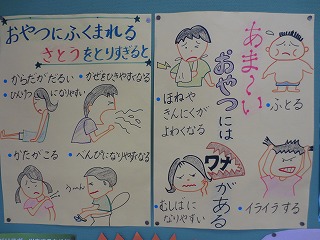 おやつにふくまれる
さとうをとりすぎると
・からだがだるい
・かぜをひきやすくなる
・ひんけつになりやすい
・かたがこる
・べんぴになりやすくなる
うーん
あま〜い
おやつには
ワナがある
・ふとる
・ほねや
きんにくが
よわくなる
・むしばに
なりやすい
・イライラする